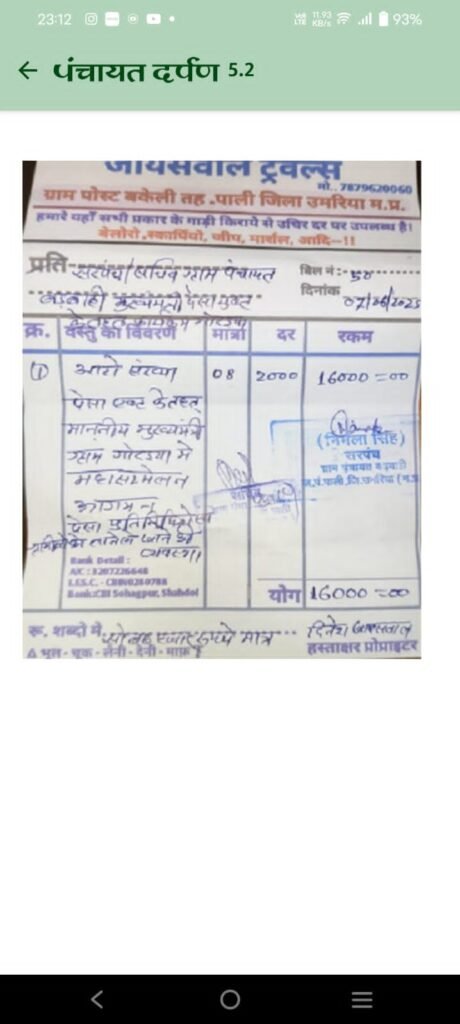 23:12
VoLTE 11.93 KB/s 93%
पंचायत दर्पण 5.2
जायसवाल ट्रेवल्स
मो.. 7879620060
ग्राम पोस्ट बकेली तह .पाली जिला उमरिया म.प्र.
हमारे यहाँ सभी प्रकार के गाड़ी किराये से उचित दर पर उपलब्ध है।
बेलोरो,स्कार्पियो, जीप, मार्सल, आदि-!!
प्रति सरपंच/सचिव ग्राम पंचायत
बिल नं:- 50
मुख्यमंत्री
दिनांक
क्र. वस्तु का विवरण मात्रा दर रकम
① 08 2000 16000=00
पेसा एक्ट के तहत
माननीय मुख्यमंत्री
ग्राम में
महासम्मेलन
आगमन
(निर्मला सिंह)
सरपंच
सचिव
Bank Detail :
A/C : 3207226648
I.F.S.C. - CBIN0280788
Bank:CBI Sohagpur, Shahdol
योग 16000=00
रू. शब्दों में सोलह हजार रुपये मात्र
दिनेश जायसवाल
भूल - चूक - लेनी - देनी - माफ
हस्ताक्षर प्रोप्राइटर